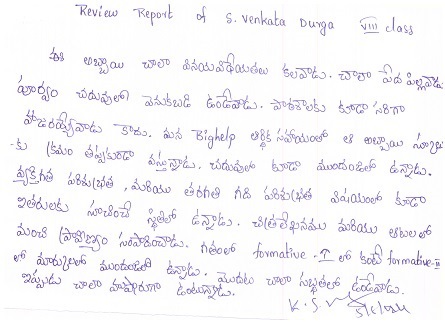 Review Report of S. Venkata Durga VIII class
ఈ అబ్బాయి చాలా వినయవిధేయతలు కలవాడు. చాలా పేద పిల్లవాడు
పూర్వం చదువులో వెనుకబడి ఉండేవాడు. పాఠశాలకు కూడా సరిగా
హాజరయ్యేవాడు కాదు. మన Bighelp ఆర్థిక సహాయంతో ఆ అబ్బాయి స్కూలు
-కు క్రమం తప్పకుండా వస్తున్నాడు. చదువులో కూడా ముందంజలో ఉన్నాడు.
వ్యక్తిగత పరిశుభ్రత, మరియు తరగతి గది పరిశుభ్రత విషయంలో కూడా
ఇతరులకు సూచించే స్థితిలో ఉన్నాడు. చిత్రలేఖనము మరియు ఆటలలో
మంచి ప్రావీణ్యం సంపాదించాడు. గతంలో formative-I లో కంటే formative-II
లో మార్కులలో ముందంజలో ఉన్నాడు. మొదట చాలా సబ్జెక్టులలో ఉండేవాడు.
ఇప్పుడు చాలా హుషారుగా ఉంటున్నాడు.
K. S.